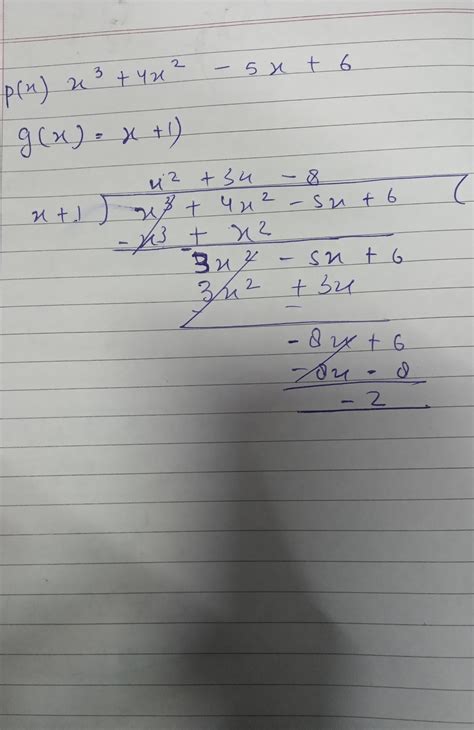 p(x) x³ + 4x² - 5x + 6
g(x) = x + 1)
x² + 3x - 8
x + 1 ) x³ + 4x² - 5x + 6 (
- x³ + x²
3x² - 5x + 6
3x² + 3x
- -
- 8x + 6
- 8x - 8
- 2